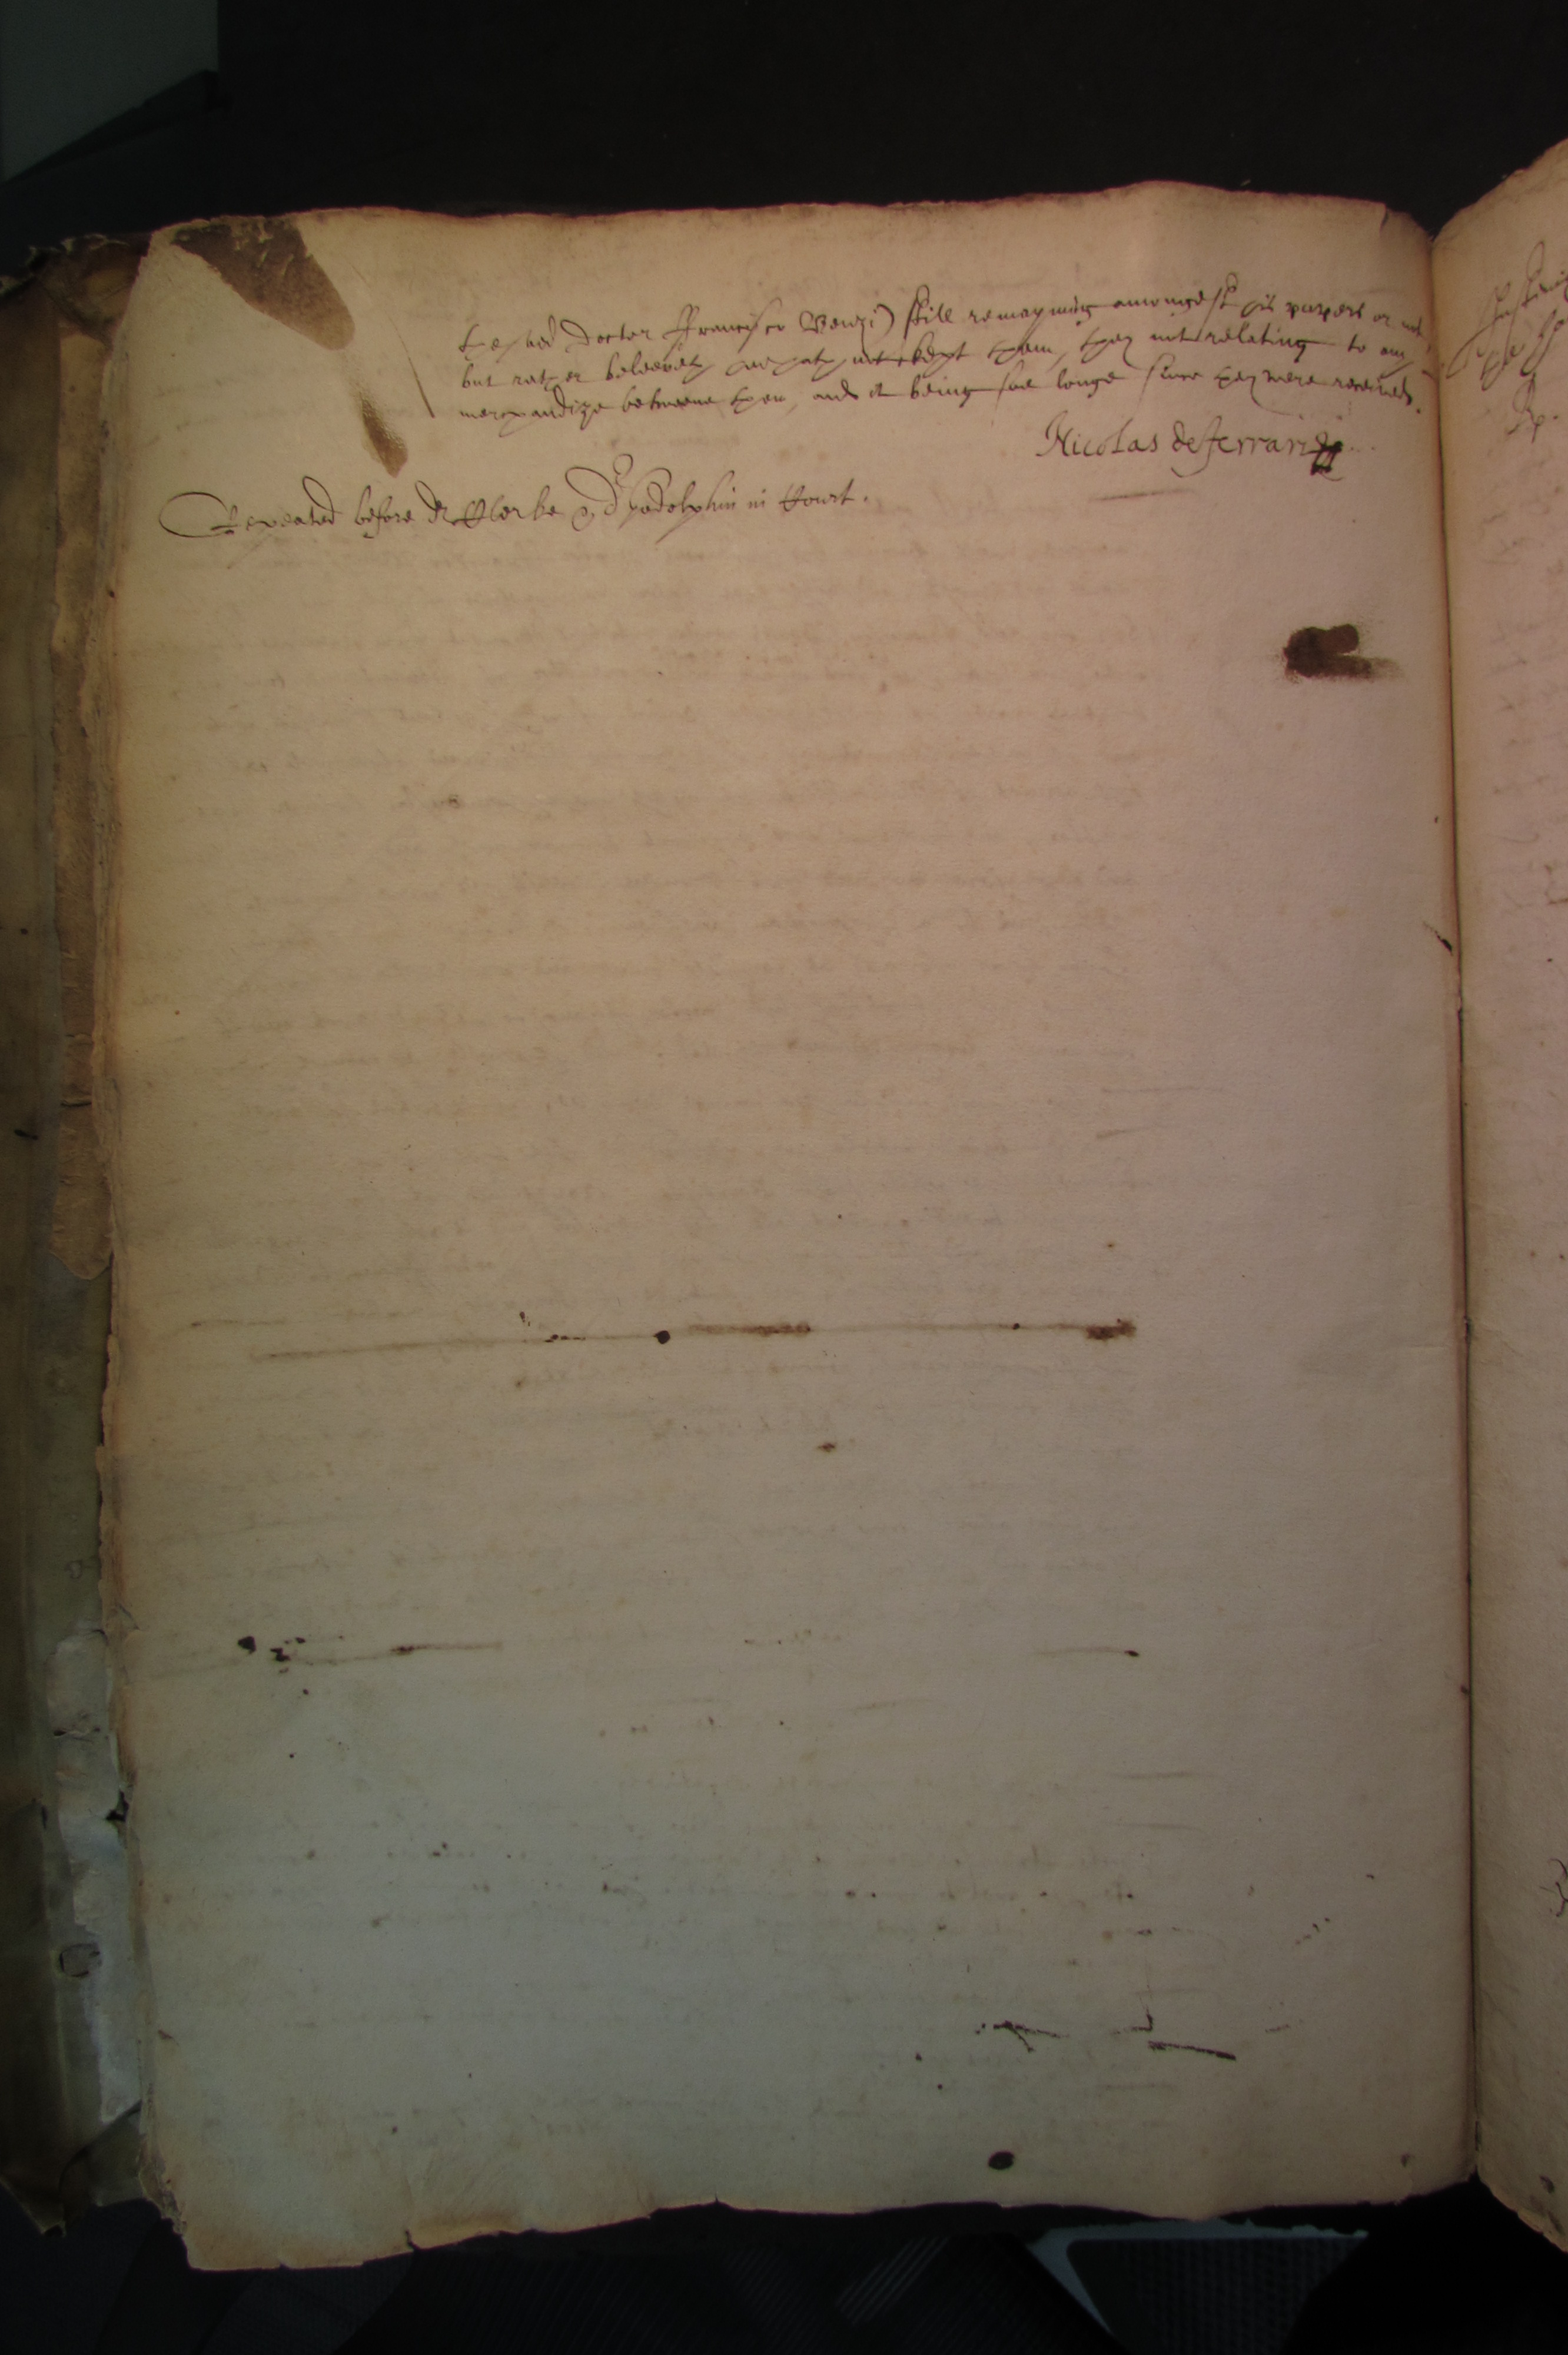 the said Doctor Francisco Venzi) still remayning amongest his papers or not,
but rather beleeveth hee hath not kept them, they not relating to any
merchandize betweene them, and it being soe longe since they were received.
Nicolas de ferrari
Repeated before Dr Clerke & Dr Godolphin in Court.